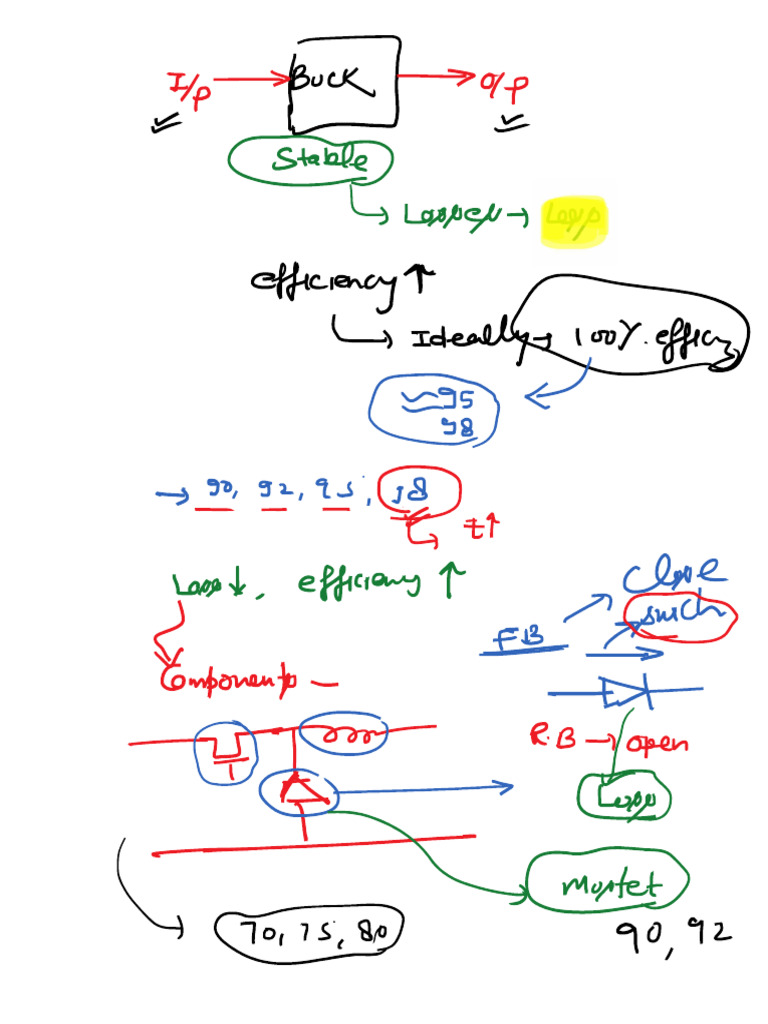 I/P → Buck → O/P
Stable
→ Loop
efficiency ↑
→ Ideally → 100%. efficiency
≈ 95
98
→ 90, 92, 95, 98
→ t↑
Loss ↓, efficiency ↑
Close
switch
FB
Components –
R.B → open
Loss
Mosfet
70, 75, 80
90, 92